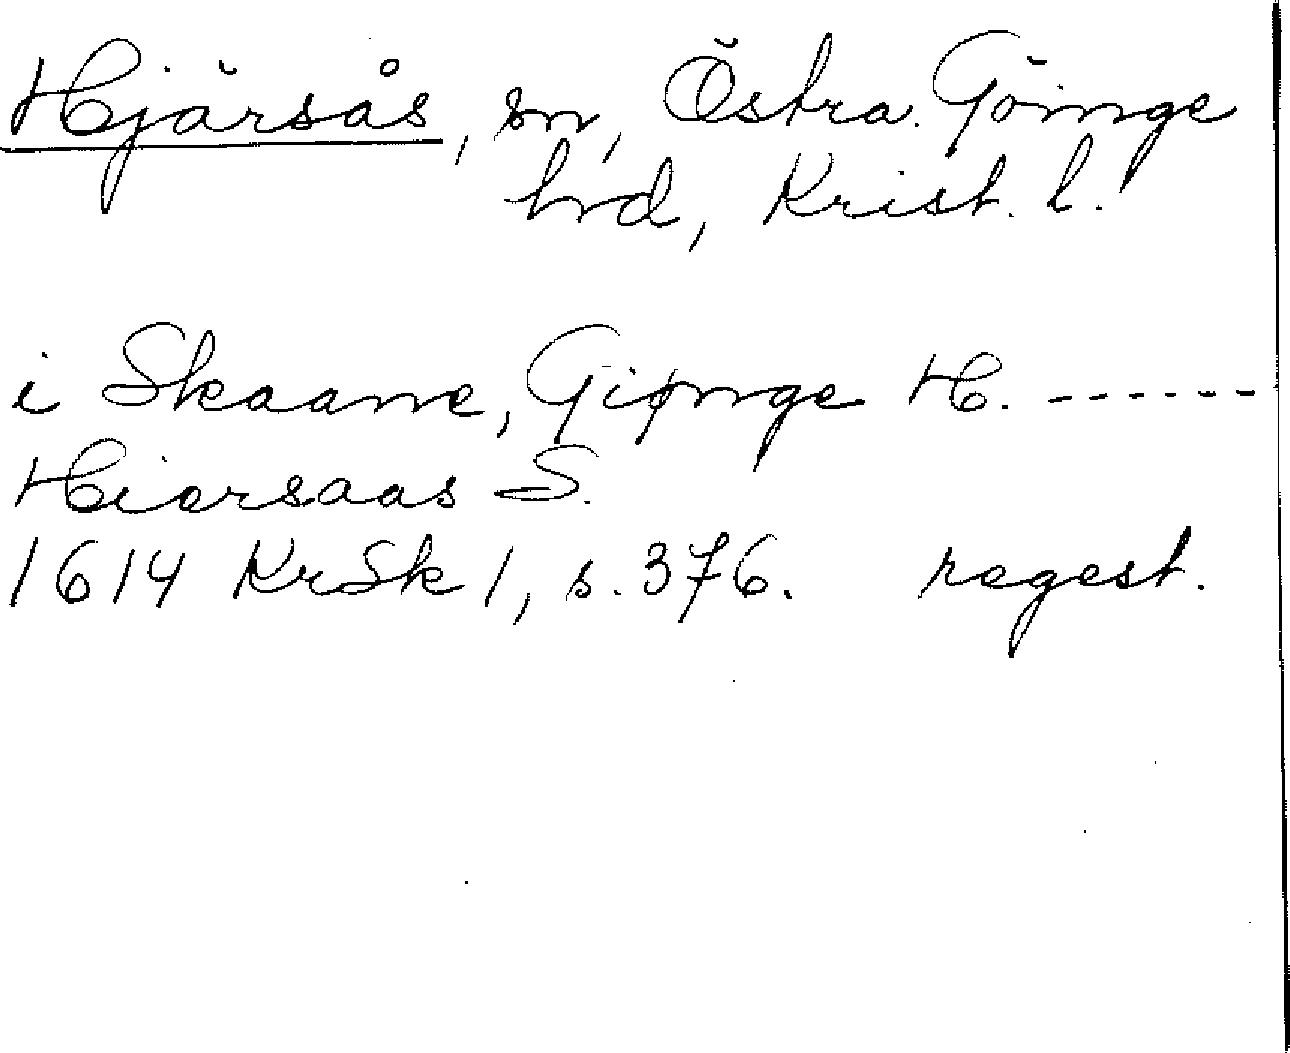 Hjärsås, sn, Östra Göinge
hrd, Krist. l.
i Skaane, Giønge H. ------
Hiorsaas S.
1614 KrSk 1, s. 376. regest.